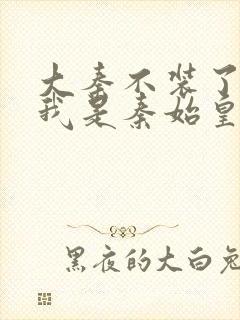 大秦不装了
我是秦始皇
黑夜的大白兔